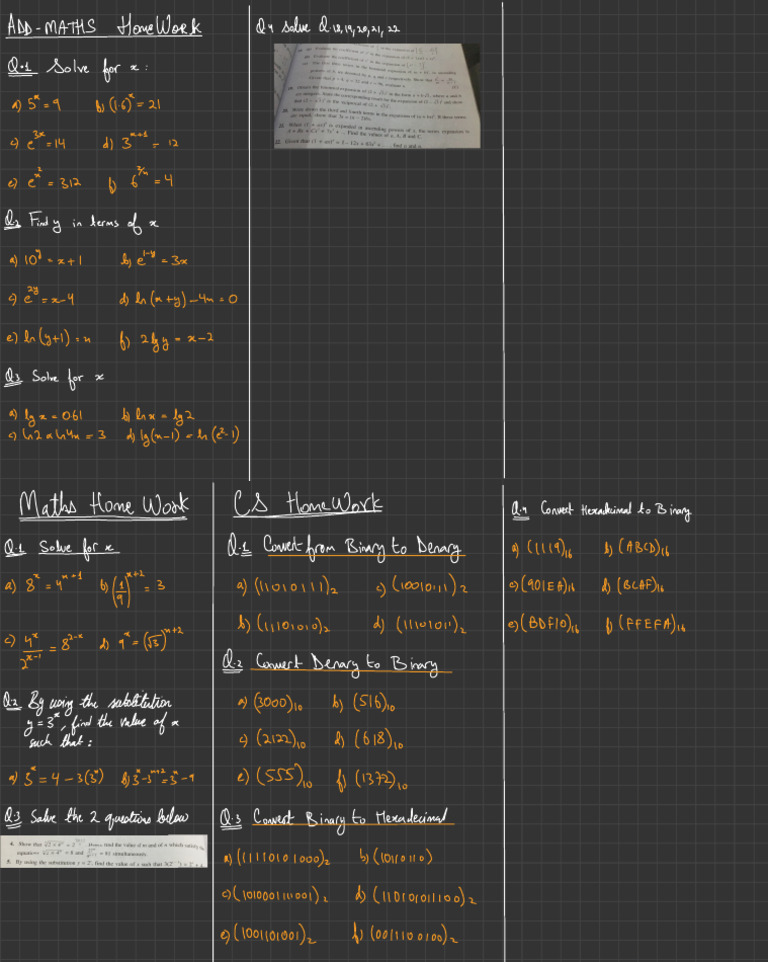 ADD-MATHS HomeWork
Q.1 Solve for x:
a) 5^x = 9 b) (1.6)^x = 21
c) e^3x = 14 d) 3^x+1 = 12
e) e^x^2 = 312 f) 6^2/x = 4
Q.2 Find y in terms of x
a) 10^y = x + 1 b) e^1-y = 3x
c) e^2y = x - 4 d) ln(x+y) - 4x = 0
e) ln(y+1) = x f) 2lg y = x - 2
Q.3 Solve for x
a) lg x = 061 b) ln x = lg 2
c) ln2 x ln4x = 3 d) lg(x-1) = ln(e^2-1)
Q4 solve Q.18,19,20,21,22
Maths Home Work
Q.1 Solve for x
a) 8^x = 4^x+1 b) (1/9)^x+2 = 3
c) 4^x/2^x-1 = 8^2-x d) 9^x = (√3)^x+2
Q.2 By using the substitution
y = 3^x, find the value of x
such that:
a) 3^x = 4 - 3(3^x) b) 3^x - 3^x+2 = 3^x - 9
Q.3 Solve the 2 questions below
5. By using the substitution y = 2^x, find the value of x such that
CS HomeWork
Q.1 Convert from Binary to Denary
a) (11010111)2 c) (10010111)2
b) (11101010)2 d) (11101011)2
Q.2 Convert Denary to Binary
a) (3000)10 b) (516)10
c) (2122)10 d) (618)10
e) (555)10 f) (1372)10
Q.3 Convert Binary to Hexadecimal
a) (11110101000)2 b) (10110110)
c) (101000111001)2 d) (110101011100)2
e) (1001101001)2 f) (0011100100)2
Q.4 Convert Hexadecimal to Binary
a) (1119)16 b) (ABCD)16
c) (901EA)16 d) (BCAF)16
e) (BDF10)16 f) (FFEFA)16